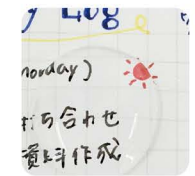 Log
monday)
打ち合わせ
資料作成